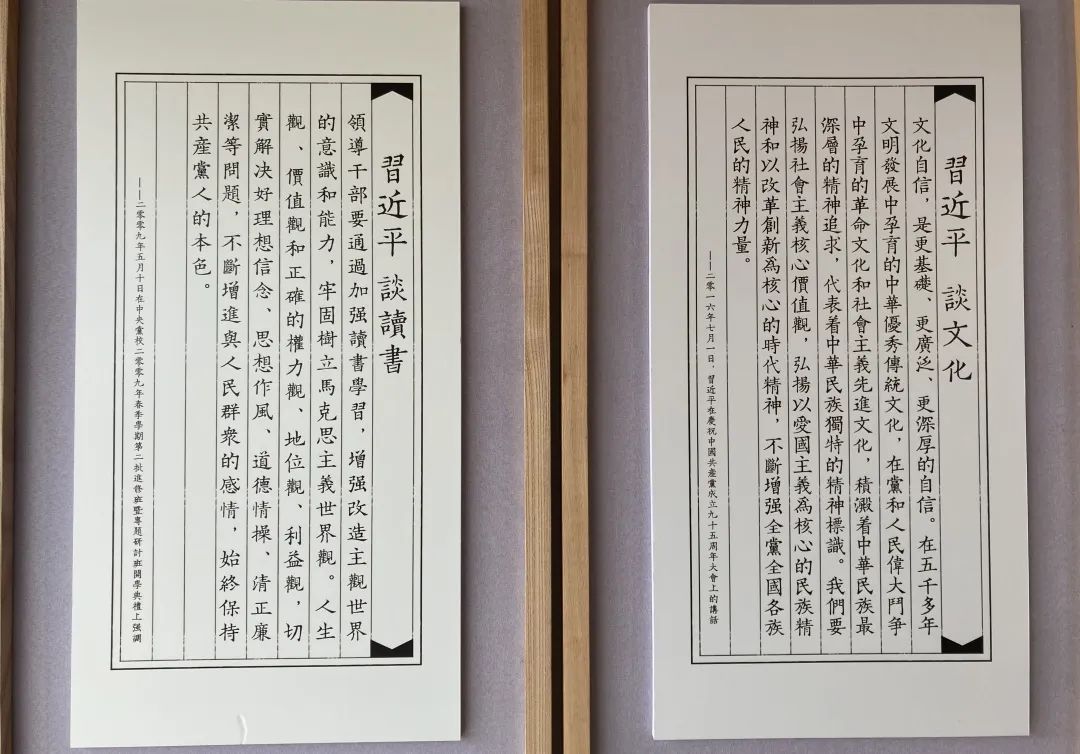 習近平 談文化
文化自信，是更基礎、更廣泛、更深厚的自信。在五千多年
文明發展中孕育的中華優秀傳統文化，在黨和人民偉大鬥争
中孕育的革命文化和社會主義先進文化，積澱着中華民族最
深層的精神追求，代表着中華民族獨特的精神標識。我們要
弘揚社會主義核心價值觀，弘揚以愛國主義爲核心的民族精
神和以改革創新爲核心的時代精神，不斷增强全黨全國各族
人民的精神力量。
——二零一六年七月一日，習近平在慶祝中國共産黨成立九十五周年大會上的講話
習近平 談讀書
領導干部要通過加强讀書學習，增强改造主觀世界
的意識和能力，牢固樹立馬克思主義世界觀。人生
觀、價值觀和正確的權力觀、地位觀、利益觀，切
實解决好理想信念、思想作風、道德情操、清正廉
潔等問題，不斷增進與人民群衆的感情，始終保持
共産黨人的本色。
——二零零九年五月十日在中央黨校二零零九年春季學期第二批進修班暨專題研討班開學典禮上强調